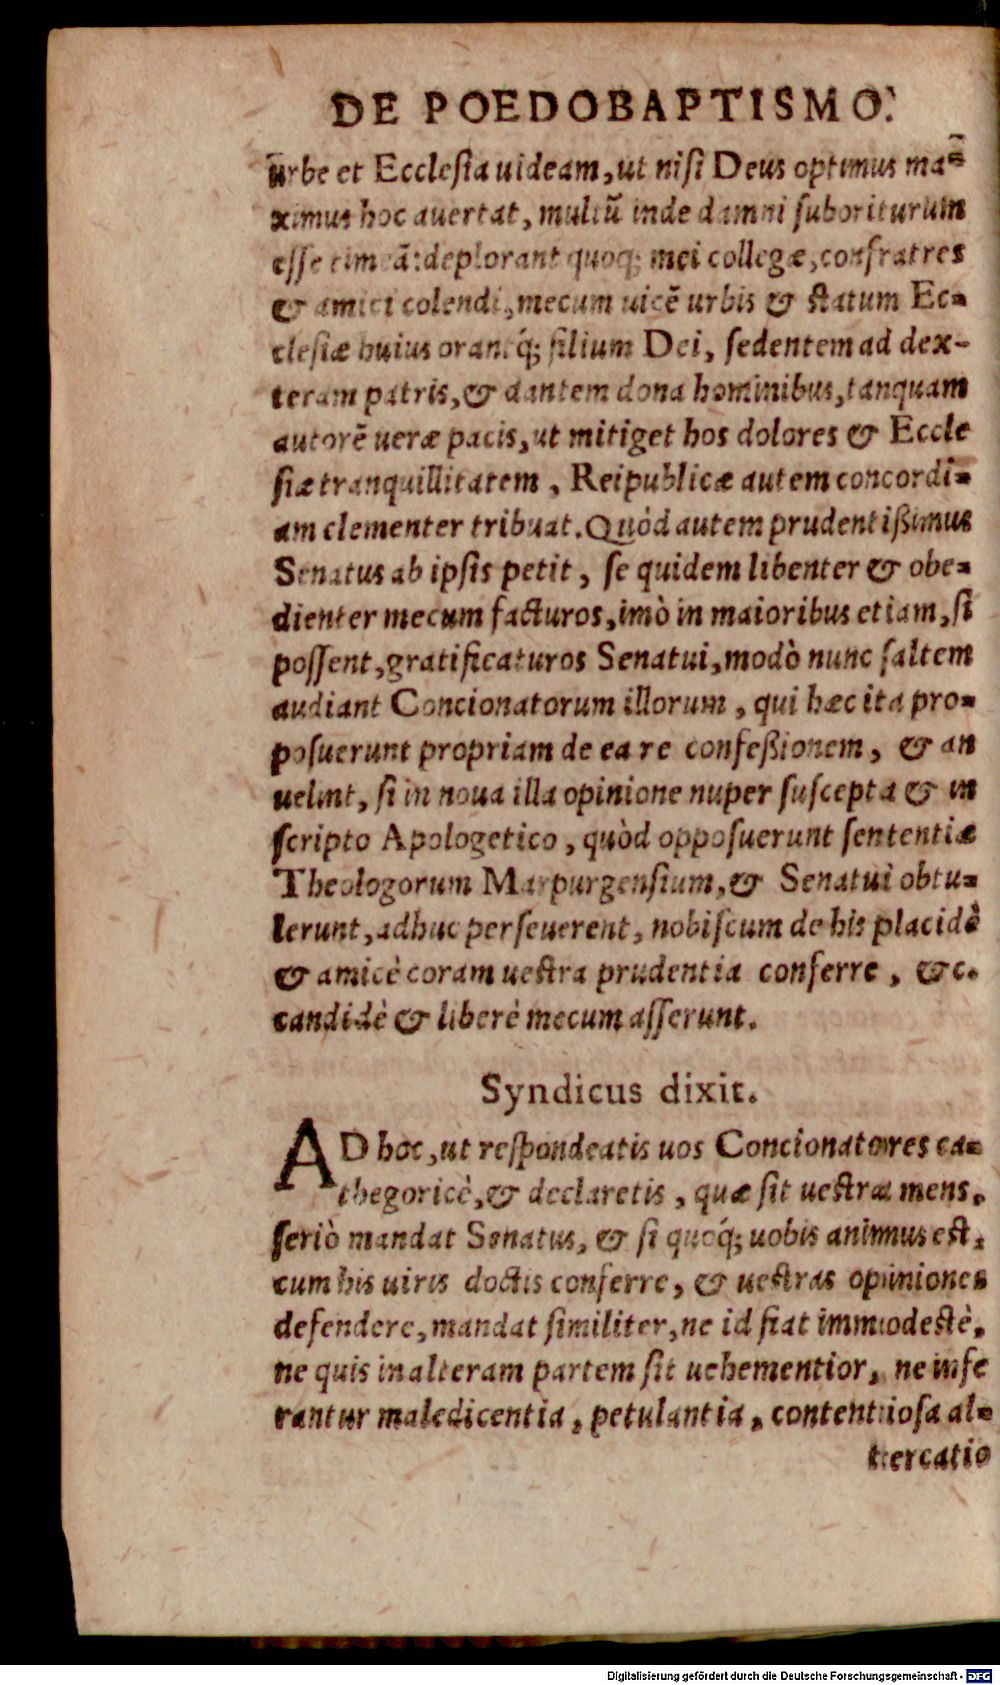 DE POEDOBAPTISMO.
urbe et Ecclesia uideam, ut nisi Deus optimus ma=
ximus hoc auertat, multũ inde damni suboriturum
esse timeã: deplorant quoq; mei collegæ, confratres
& amici colendi, mecum uicẽ urbis & statum Ec=
clesiæ huius orantq́; filium Dei, sedentem ad dex-
teram patris, & dantem dona hominibus, tanquam
autorẽ ueræ pacis, ut mitiget hos dolores & Eccle
siæ tranquillitatem, Reipublicæ autem concordi=
am clementer tribuat. Quòd autem prudentißimus
Senatus ab ipsis petit, se quidem libenter & obe=
dienter mecum facturos, imò in maioribus etiam, si
possent, gratificaturos Senatui, modò nunc saltem
audiant Concionatorum illorum, qui hæc ita pro=
posuerunt propriam de ea re confeßionem, & an
uelint, si in noua illa opinione nuper suscepta & in
scripto Apologetico, quòd opposuerunt sententiæ
Theologorum Marpurgensium, & Senatui obtu=
lerunt, adhuc perseuerent, nobiscum de his placidè
& amicè coram uestra prudentia conferre, &c.
candidè & liberè mecum asserunt.
Syndicus dixit.
AD hoc, ut respondeatis uos Concionatores ca=
thegoricè, & declaretis, quæ sit uestra mens,
seriò mandat Senatus, & si quoq́; uobis animus est,
cum his uiris doctis conferre, & uestras opiniones
defendere, mandat similiter, ne id fiat immodestè,
ne quis in alteram partem sit uehementior, ne infe
rantur maledicentia, petulantia, contentiosa al=
tercatio
Digitalisierung gefördert durch die Deutsche Forschungsgemeinschaft - DFG